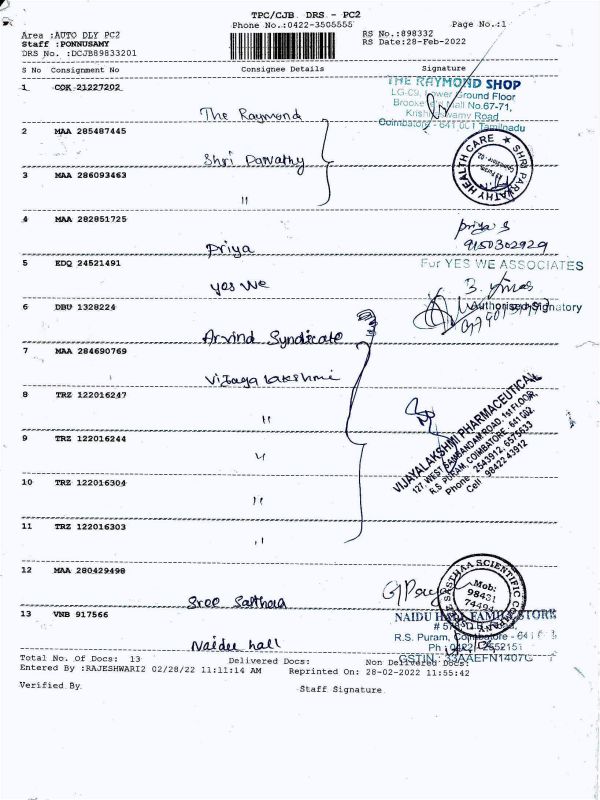 TPC/CJB DRS - PC2
Phone No.:0422-3505555
Page No.:1
Area :AUTO DLY PC2
Staff :PONNUSAMY
DRS No. :DCJB89833201
RS No.:898332
RS Date:28-Feb-2022
S No Consignment No Consignee Details Signature
1 COK 21227202
The Raymond
THE RAYMOND SHOP
LG-09, Lower Ground Floor
Mall No.67-71,
Road
Coimbatore - 641 001 Tamilnadu
2 MAA 285487445
Shri Parvathy
SHRI PARVATHY HEALTH CARE
3 MAA 286093463
"
4 MAA 282851725
Priya
Priya S
9150302929
5 EDQ 24521491
Yes We
For YES WE ASSOCIATES
Authorised Signatory
6 DBU 1328224
Arvind Syndicate
7 MAA 284690769
Vijaya Lakshmi
8 TRZ 122016247
"
9 TRZ 122016244
"
10 TRZ 122016304
"
11 TRZ 122016303
"
VIJAYALAKSHMI PHARMACEUTICAL
127, WEST SAMBANDAM ROAD, 1st FLOOR,
R.S. PURAM, COIMBATORE - 641 002.
Phone : 2543912, 6575633
Cell : 98422 43912
12 MAA 280429498
Sree Sasthaa
SREE SASTHAA SCIENTIFIC COMPANY
Mob:
98431
13 VNB 917566
Naidu hall
NAIDU HALL FAMILY STORE
R.S. Puram, Coimbatore - 641
Ph : 0422 - 2552151
Total No. Of Docs: 13 Delivered Docs: Non Delivered Docs:
Entered By :RAJESHWARI2 02/28/22 11:11:14 AM Reprinted On: 28-02-2022 11:55:42
Verified By Staff Signature